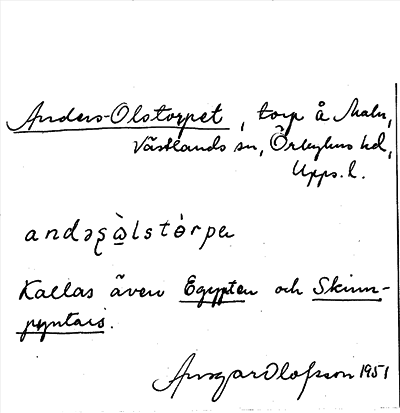 Anders-Olstorpet, torp å Maln,
Västlands sn, Örbyhus hd,
Upps. l.
andəʂὼlstòrpeₙ
Kallas även Egypten och Skinn-
pyntais.
Ansgar Olofsson 1951